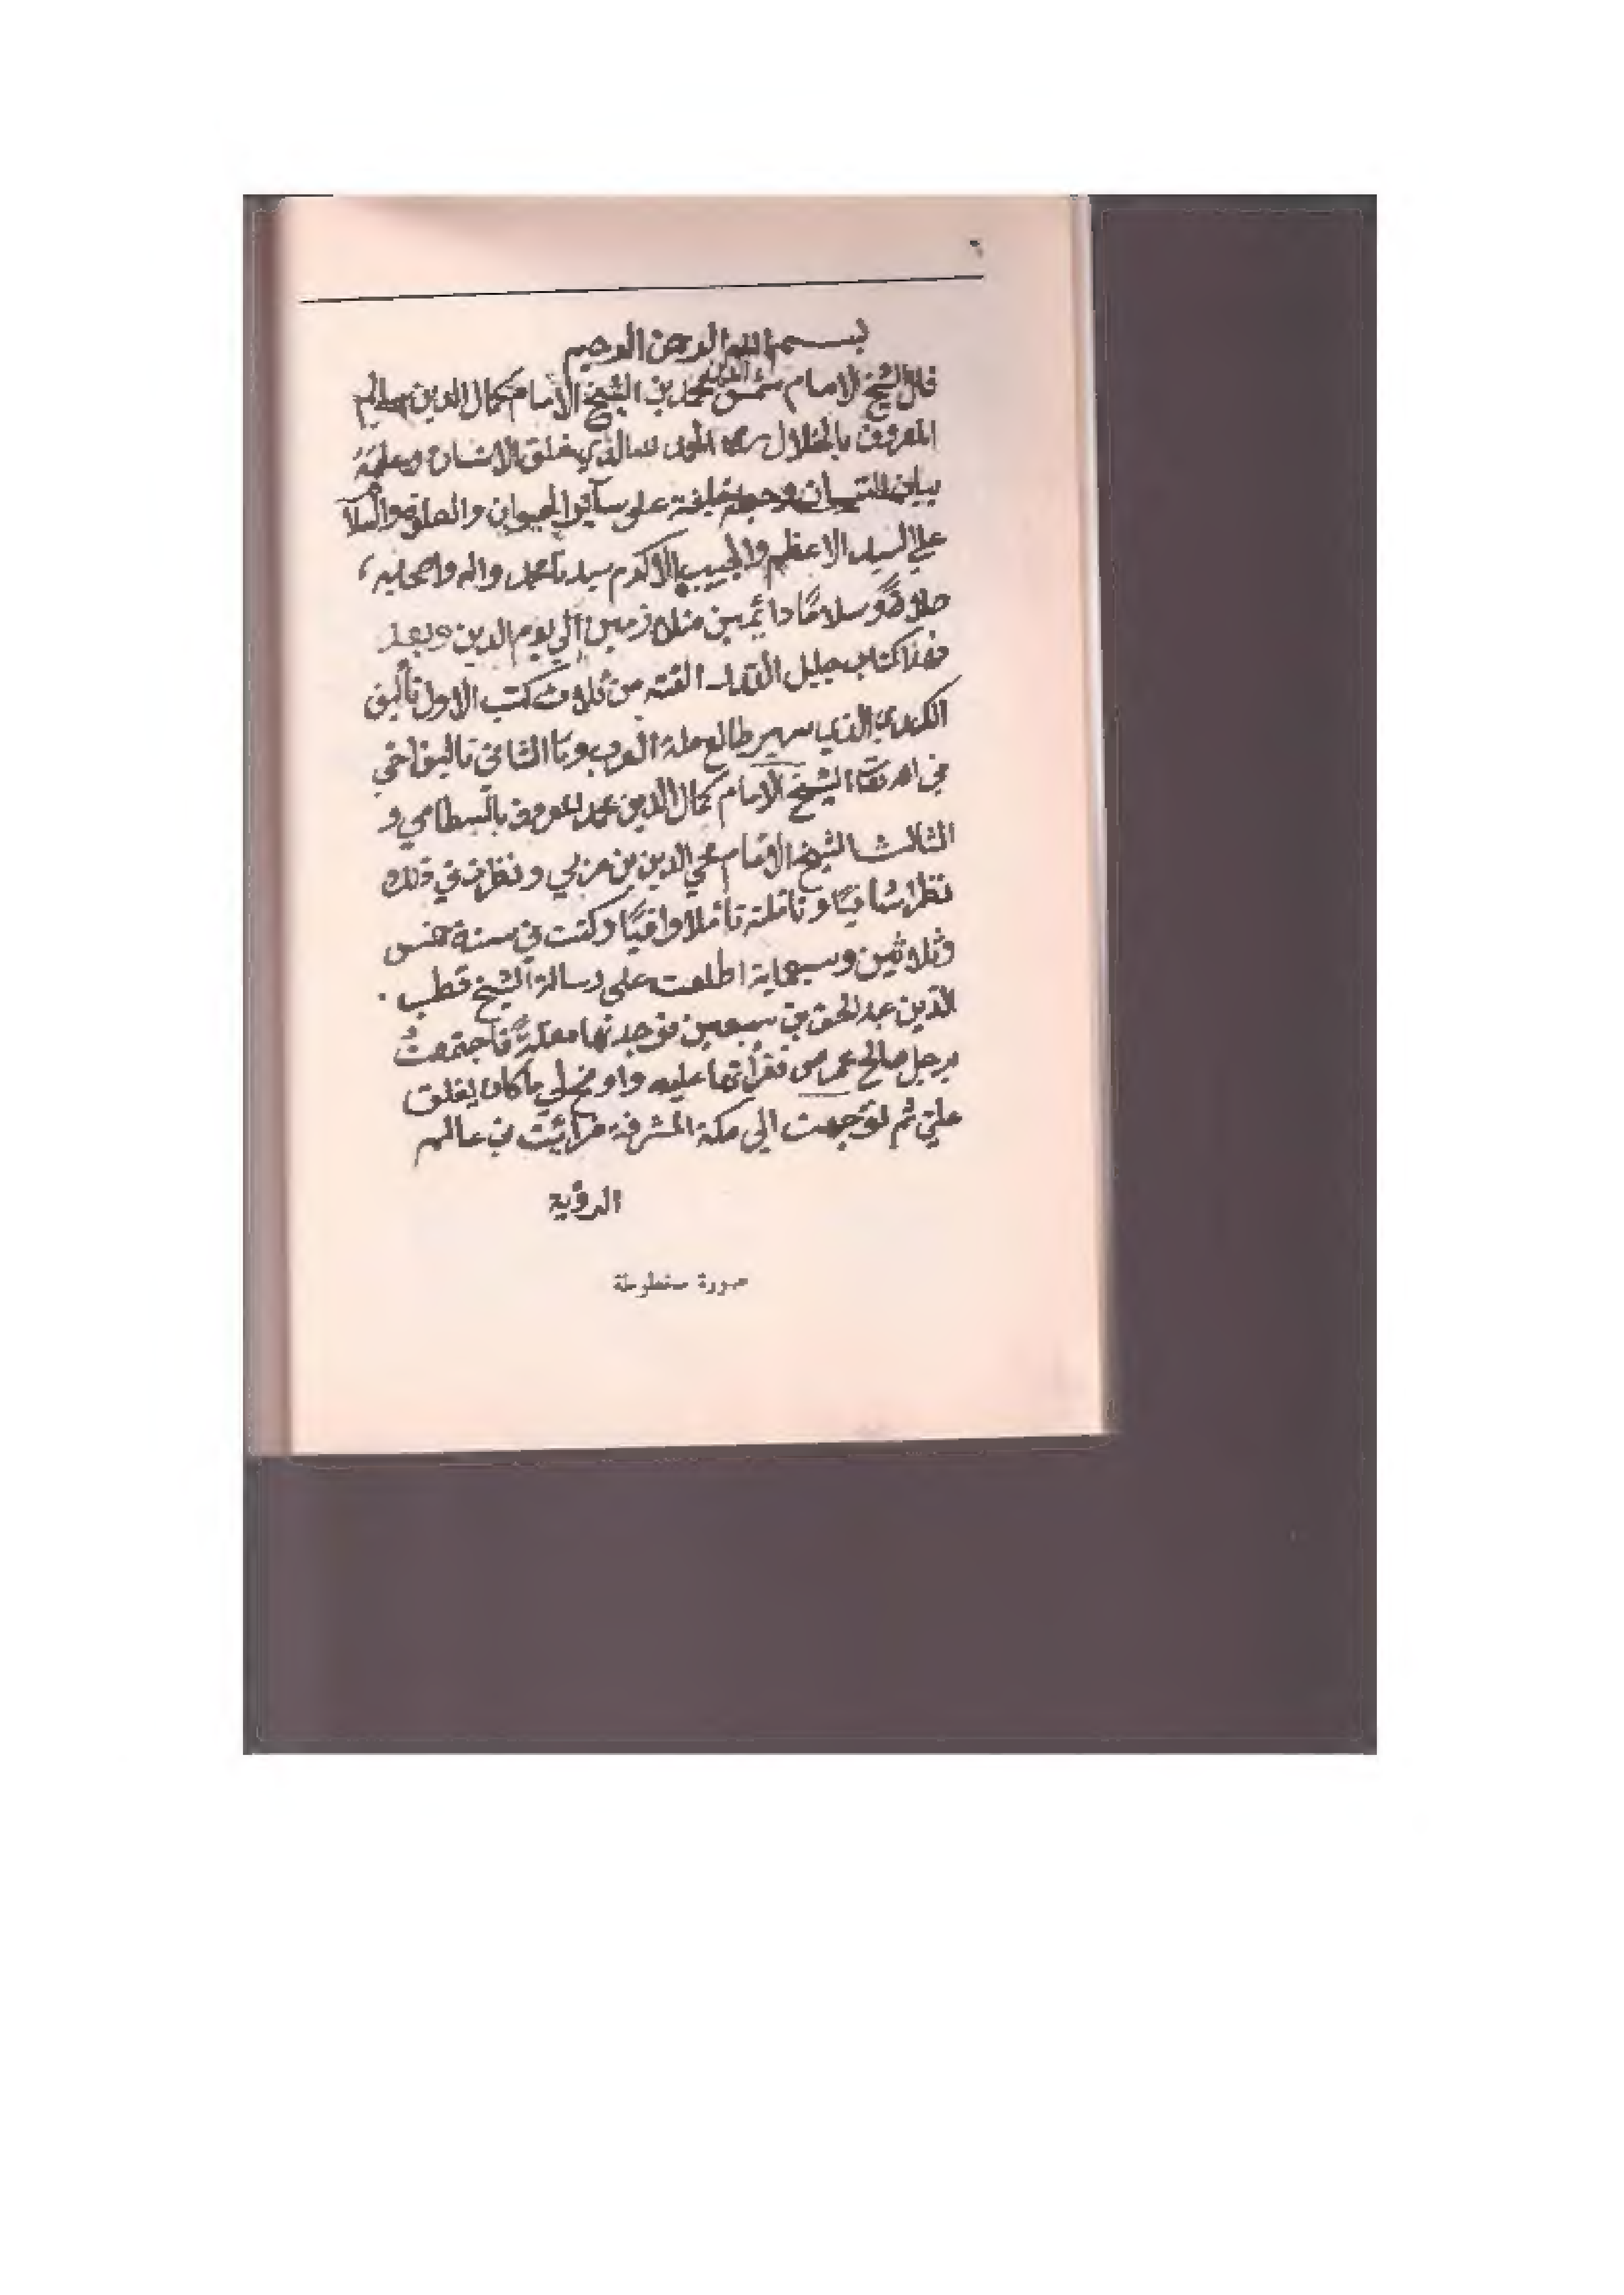 ٦
بسم الله الرحمن الرحيم
قال الشيخ الامام شمس الدين محمد بن الشيخ الامام كمال الدين سالم
المعروف بالخلال الذي خلق الانسان وعلمه
بيان التبيان وجعله خليفة على سائر الحيوان والصلوة والسلا
علي السيد الاعظم والحبيب الاكرم سيدنا محمد واله واصحابه
صلاةً وسلامًا دائمين متلازمين الي يوم الدين وبعد
فهذا كتاب جليل القدر الفته من ثلاث كتب الاول تأليف
الكندي الذي طالع ملة العرب الثاني تاليف اخي
في الشيخ الامام كمال الدين محمد المعروف بالبسطامي و
الثالث الشيخ الامام محي الدين بن عربي ونظرت في ذلك
نظرا شافيًا وتأملته تأملا وافيًا وكنت في سنة خمس
وثلاثين وسبعماية اطلعت على رسالة الشيخ قطب
الدين عبد الحق بن سبعين فوجدتها فاجتمعتُ
برجل صالح فقرأتها عليه واوضح لي ماكان يغلق
علي ثم توجهت الي مكة المشرفة فرأيت في عالم
الرؤية
صورة مخطوطة